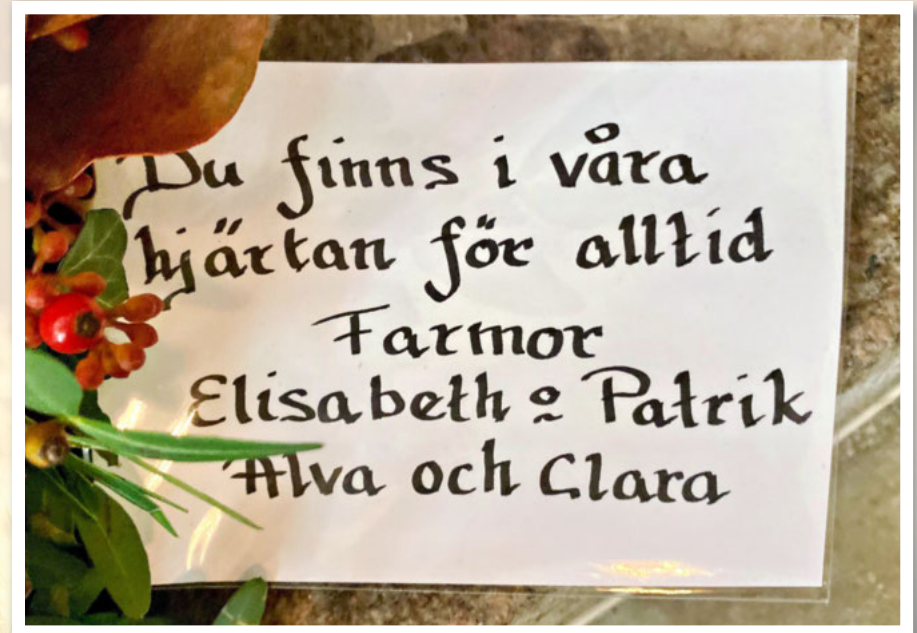 Du finns i våra
hjärtan för alltid
Farmor
Elisabeth o Patrik
Alva och Clara